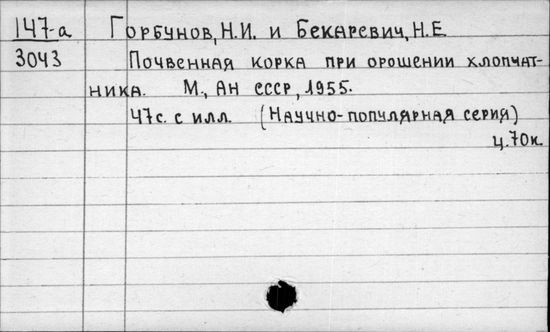 147-а Горбунов, Н.И. и Бекаревич, Н.Е
3043 Почвенная корка при орошении хлопчат-
ника. М., Ан СССР, 1955.
47с. с илл. (Научно-популярная серия)
ц. 70к.